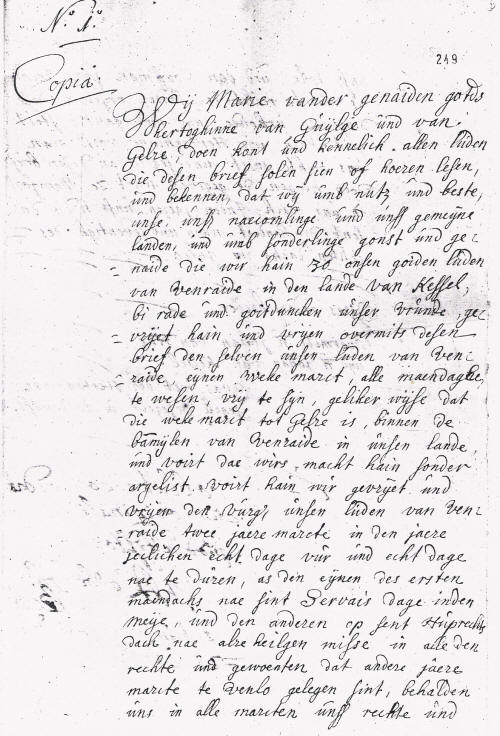 N.º 1º
249
Copia
Wÿ Marie vander genaiden gotds
hertoghinne van Guÿlge ünd van
Gelre, doen kont ünd kennelich allen lüden
die desen brief solen sien of hoeren lesen,
ünd bekennen, dat wÿ ümb nütz ünd beste,
ünse, ünss naecomlinge ünd ünss gemeyne
landen, ünd ümb sonderlinge gonst ünd ge-
naide die wir hain zo onsen goiden lüden
van Venraide in den lande van Kessel,
bi rade ünd goitduncken ünser vründe, ge-
vrÿet hain ünd vrÿen overmits desen
brief den selven ünsen lüden van Ven-
raide, eÿnen weke marct, alle maendaghe
te wesen, vrÿ te sÿn, geliker wÿse dat
die weke marct tot Gelre is, binnen de
bamÿlen van Venraide in ünsen lande,
ünd voirt dae wirs macht hain sonder
argelist. Voirt hain wir gevrÿet ünd
vrÿen den vürgs ünsen lüden van Ven-
raide twee jaere marcte in den jaere
jeclichen echt dage vür ünd echt dage
nae te düren, as den eÿnen des ersten
maendachs nae sint Servais dage inden
meÿe, ünd den anderen op sent Hüprechts
dach nae alre heilgen misse in alle den
rechte ünd gewoenten dat andere jaere
marcte te Venlo gelegen sint, behalden
üns in alle marcten ünss rechte ünd